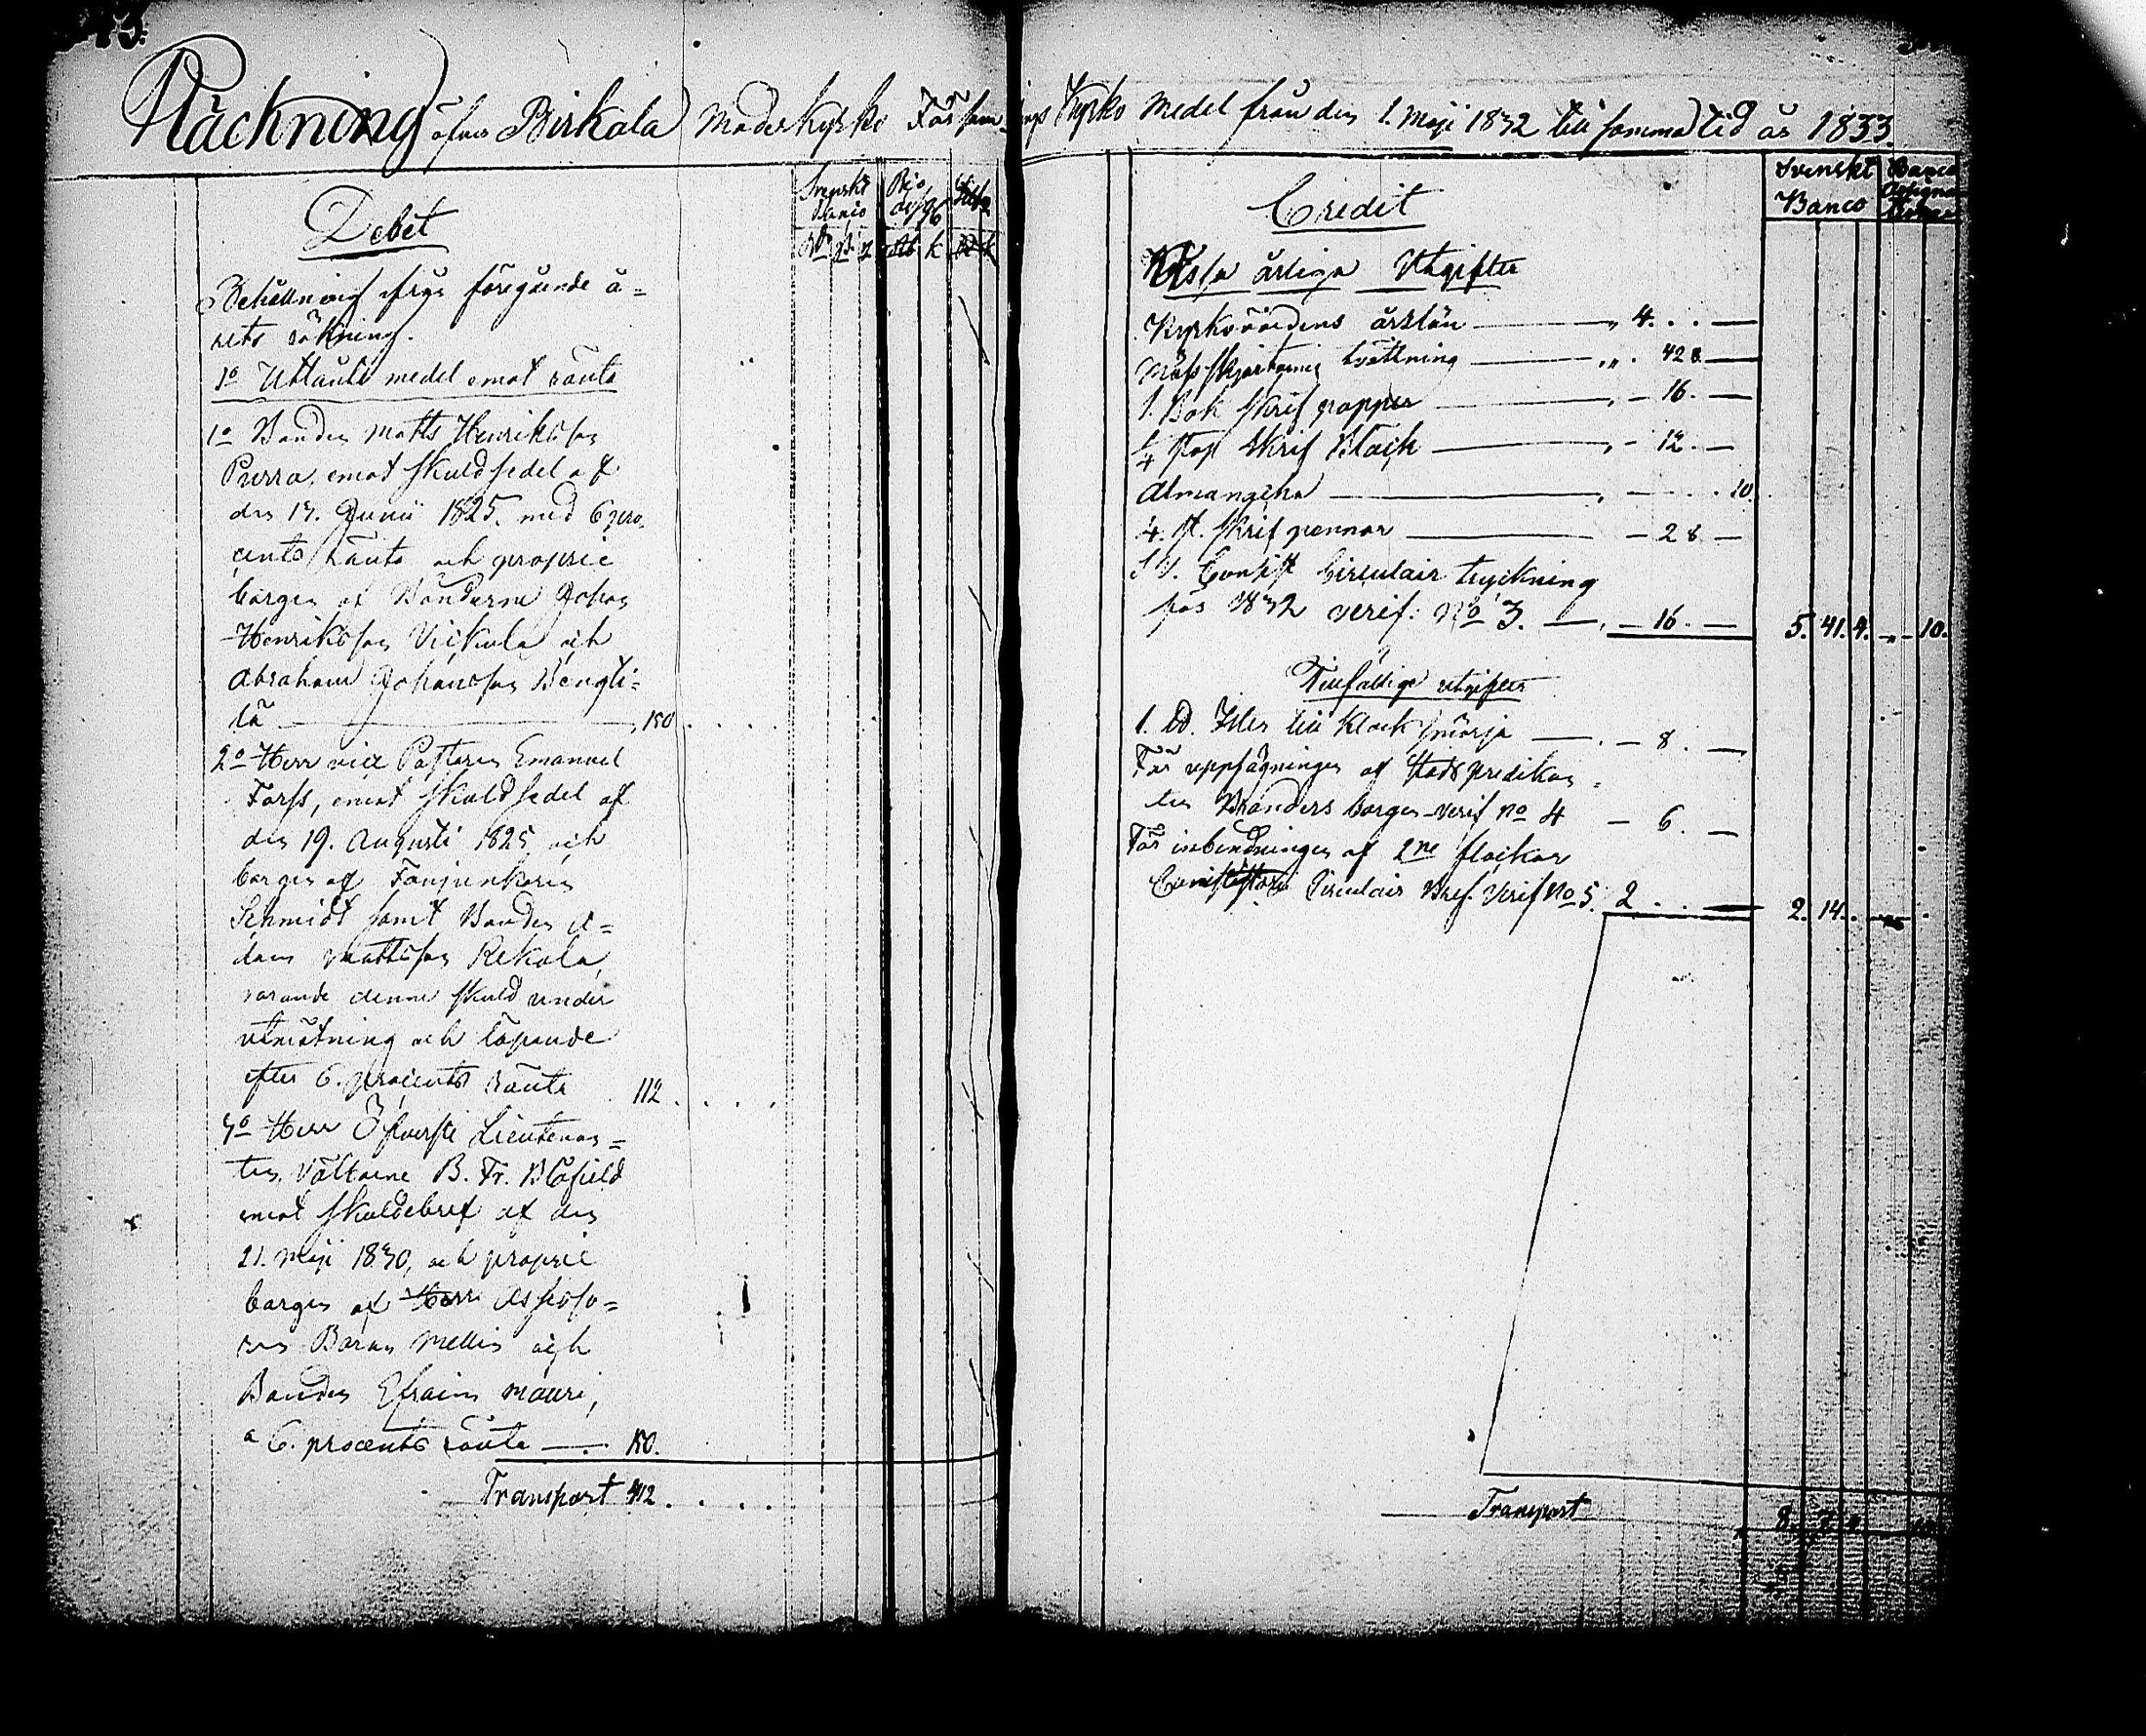 Räckning öfver Birkala Moderkyrko Församlings Kyrko Medel från den 1. Maji 1832 till samma tid år 1833.
Debet
Svenskt Banco
Rd s r
Behållning från föregående å=
rets räkning.
1o Utlånte medel emot ränta
1o Bonden Matts Henriksson
Purra, emot skuldsedel af
den 17. Junii 1825. med 6 pro-
cents ränta och proprie
borgen af Bönderne Johan
Henriksson Vickula och
Abraham Johansson Bengti=
lä 150
2o Herr vice Pastoren Emanuel
Forss, emot skuldsedel af
den 19. Augusti 1825 och
borgen af Fanjunkaren
Schmidt samt Bonden A=
dam Mattsson Rekola,
varande denne skuld under
utmätning och löpande
efter 6. procents ränta 112
3o Herr Öfverste Lieutenan=
ten, Välborne B. Fr. Blåfield
emot skuldebref af den
21. Maji 1830, och proprie
borgen af Herr Assesso=
ren Baron Mellin och
Bonden Efraim Mauri,
a 6. procents ränta 150.
Transport 412
Credit
Svenskt Banco
Banco Assigna
Vissa årliga Utgifter
Kyrkovärdens årslön 4.
Mässskjortornes tvättning 42 8
1. Bok skrif papper 16.
1/4 stop skrif Bläck 12.
Almanacha 10.
4. st. skrif pennor 2 8
Consist Circulair tryckning
för 1832 verif: No 3. 16. 5. 41. 4. 10.
Tillfällige utgifter
1. lb. Ister till klock smörja 8.
För uppsägningen af Stads predikan=
ten Branders borgen verif No 4 6.
För inbindningen af 2ne flockar
Circulair Bref. Verif No 5. 2 2. 14.
Transport 8. 7. 4. 10.